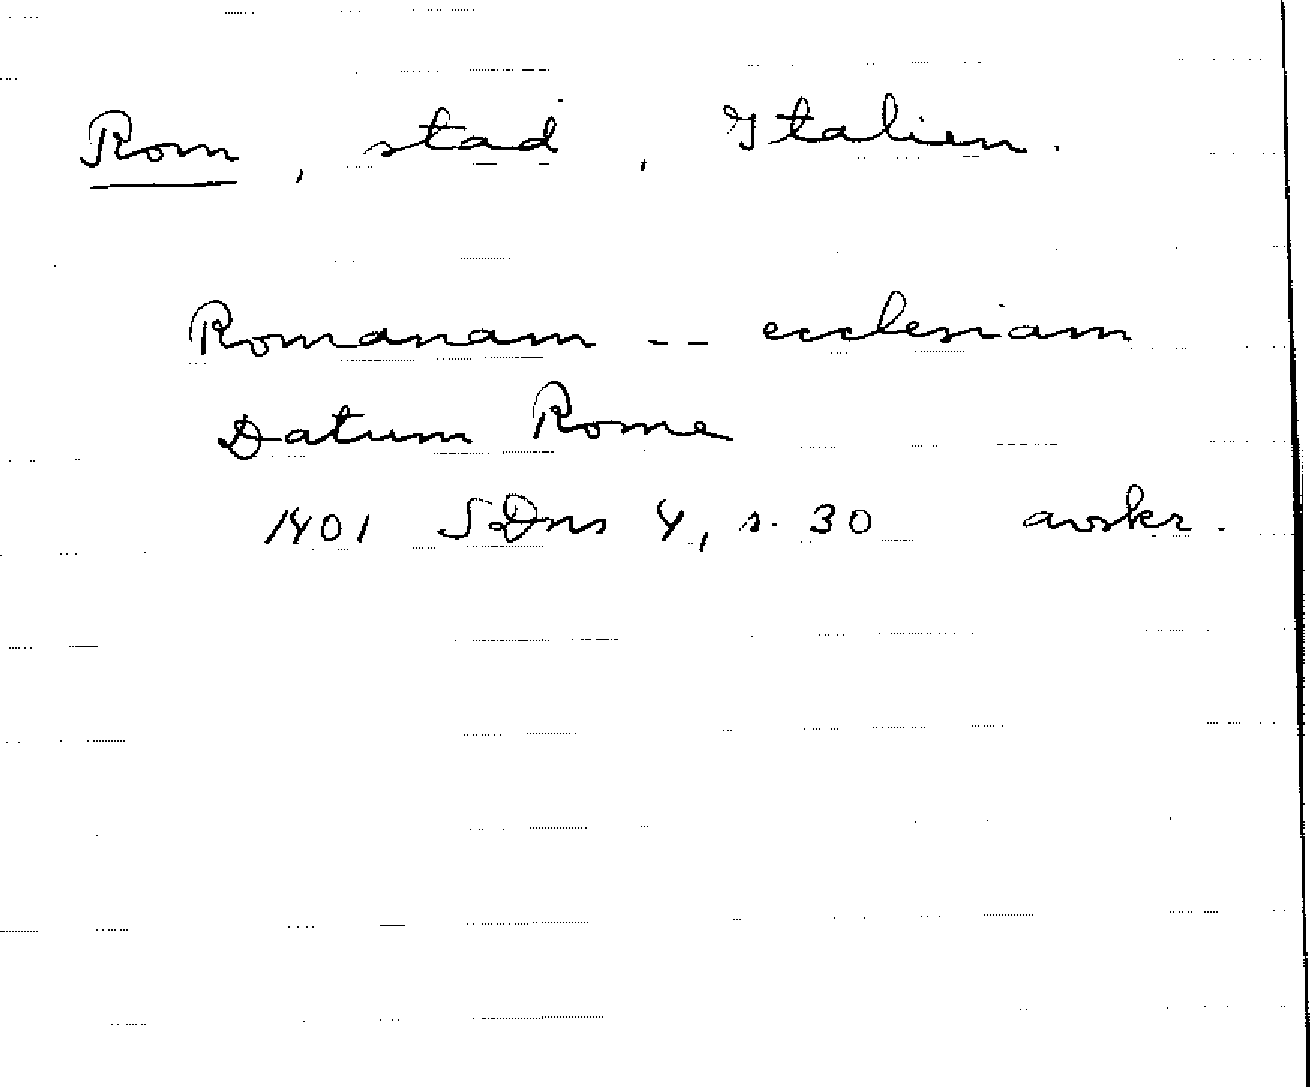 Rom, stad, Italien.
Romanam -- ecclesiam
Datum Rome
1401 SDns 4, s. 30 avskr.